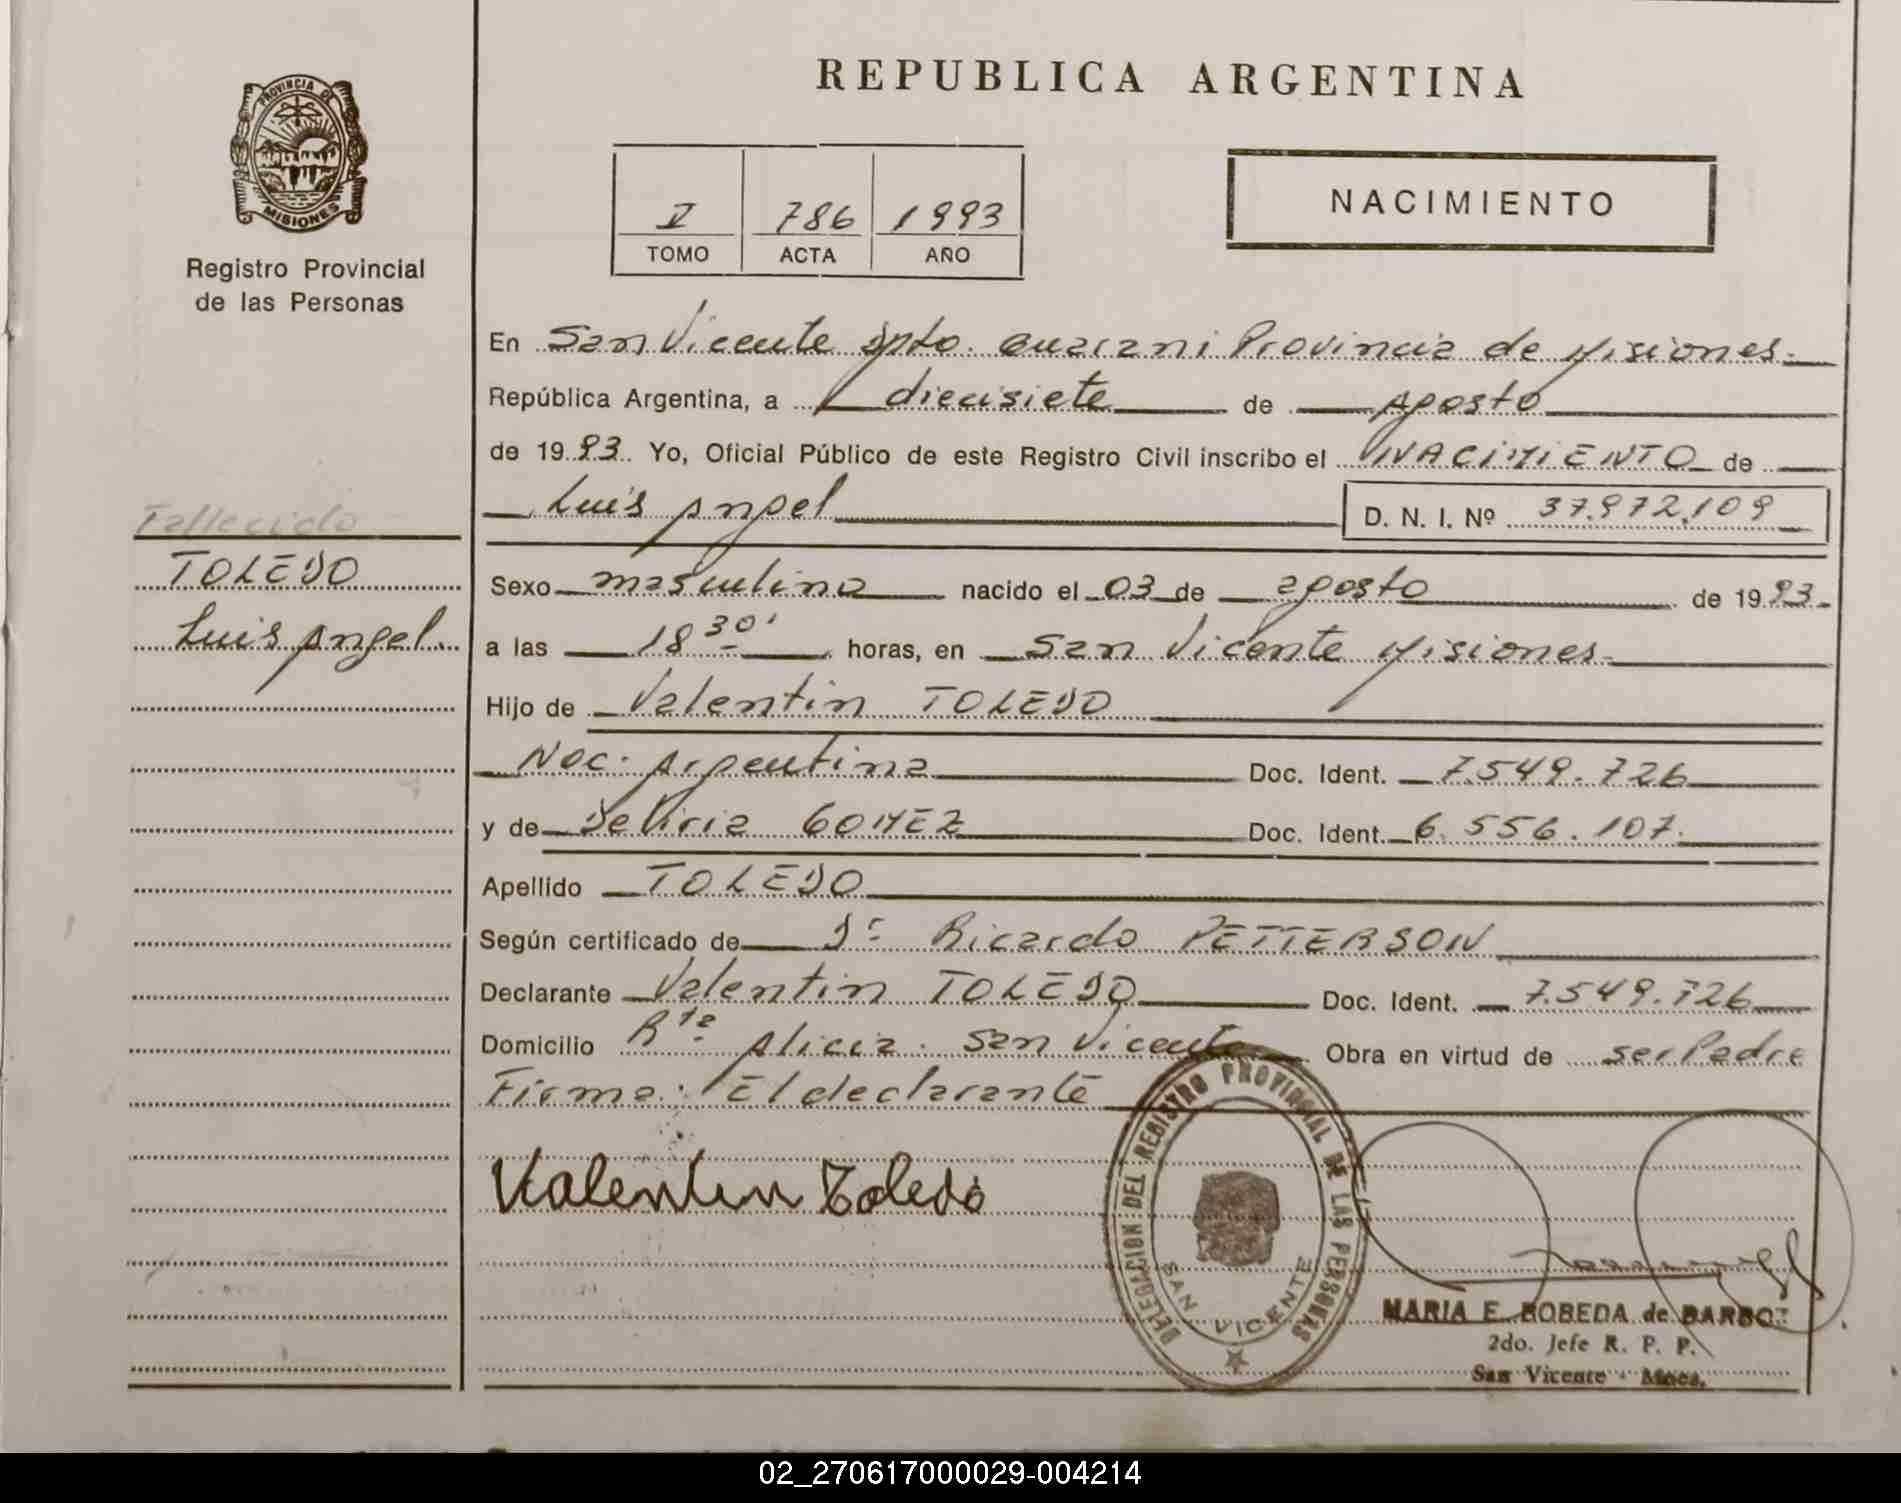 PROVINCIA DE
MISIONES
Registro Provincial
de las Personas
Fallecido
TOLEDO
Luis Angel.
REPUBLICA ARGENTINA
I 786 1993
TOMO ACTA AÑO
NACIMIENTO
En San Vicente Dpto. Guarani Provincia de Misiones.
República Argentina, a diecisiete de Agosto
de 1993. Yo, Oficial Público de este Registro Civil inscribo el NACIMIENTO de
Luis Angel D. N. I. Nº 37.972.109
Sexo masculino nacido el 03 de agosto de 1993.
a las 18 30' horas, en San Vicente Misiones.
Hijo de Valentin TOLEDO
Nac. Argentina Doc. Ident. 7.549.726
y de Deliria GOMEZ Doc. Ident. 6.556.107.
Apellido TOLEDO
Según certificado de Dr Ricardo PETTERSON
Declarante Valentin TOLEDO Doc. Ident. 7.549.726
Domicilio Rta Alicia. San Vicente Obra en virtud de ser Padre
Firma: El declarante
Valentin Toledo
DELEGACION DEL REGISTRO PROVINCIAL DE LAS PERSONAS
SAN VICENTE
MARIA E. BOBEDA de BARBOZ
2do. Jefe R. P. P.
San Vicente - Mnes.
02_270617000029-004214